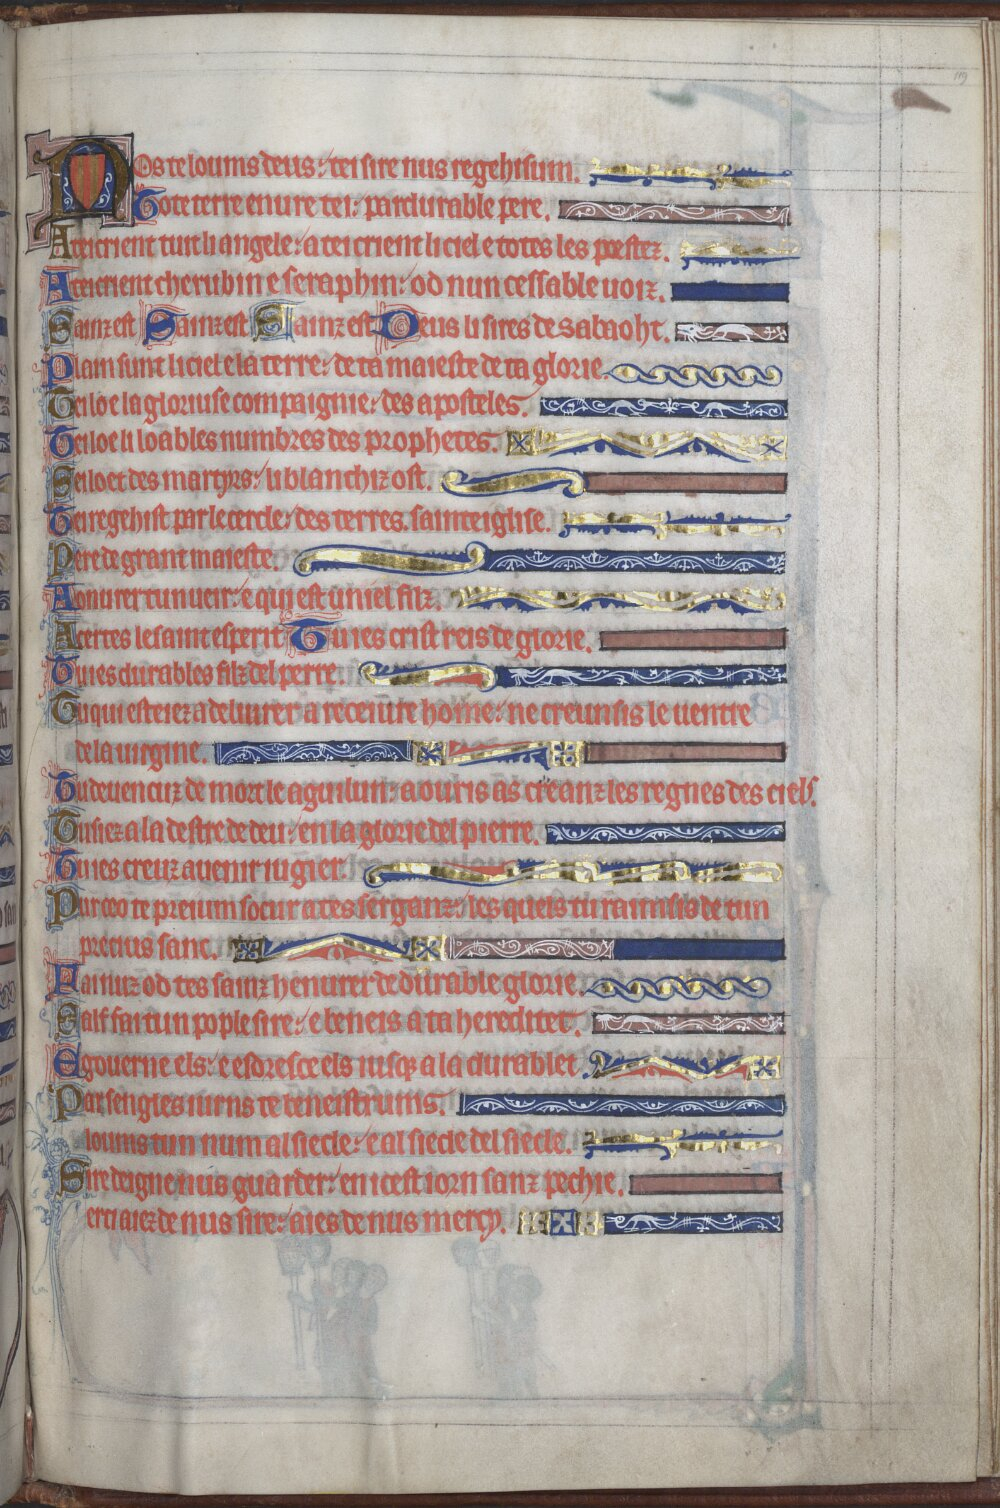 119
Nos te loums deus: tei sire nus regehisum.
Tote terre enure tei: pardurable pere.
A tei crient tuit li angele: a tei crient li ciel e totes les poestez.
A tei crient cherubin e seraphin: od nun cessable uoiz.
Sainz est Sainz est Sainz est Deus li sires de sabaoht.
Plain sunt li ciel e la terre: de ta maieste de ta glorie.
Tei loe la gloriuse compaignie: des aposteles.
Tei loe li loables numbres des prophetes.
Sei loet des martyrs: li blanchiz ost.
Tei regehist par le cercle: des terres. sainte iglise.
Pere de grant maieste.
Aonurer tun ueir: e qui est uniel filz.
Acertes le saint esperit Tu ies crist reis de glorie.
Tu ies durables filz del perre.
Tu qui esteiez a deliurer a receiure home: ne creinsis le uentre
de la uirgine.
Tu deuencuz de mort le aguilun: aouris as creanz les regnes des ciels.
Tu siez a la destre de deu: en la glorie del pierre.
Tu ies creuz auenir iugier.
Pur ceo te preium socur a tes serganz: les quels tu raimsis de tun
precius sanc.
Fai nuz od tes sainz henurer de durable glorie.
Salf fai tun pople sire: e beneis a ta heredited.
E gouerne els: e esdresce els iusq a la durablet.
Par sengles iurns te beneistrums.
loums tun num al siecle: e al siecle del siecle.
Sire deigne nus guarder: en icest iorn sanz pechie.
erci aiez de nus sire: aies de nus mercy.